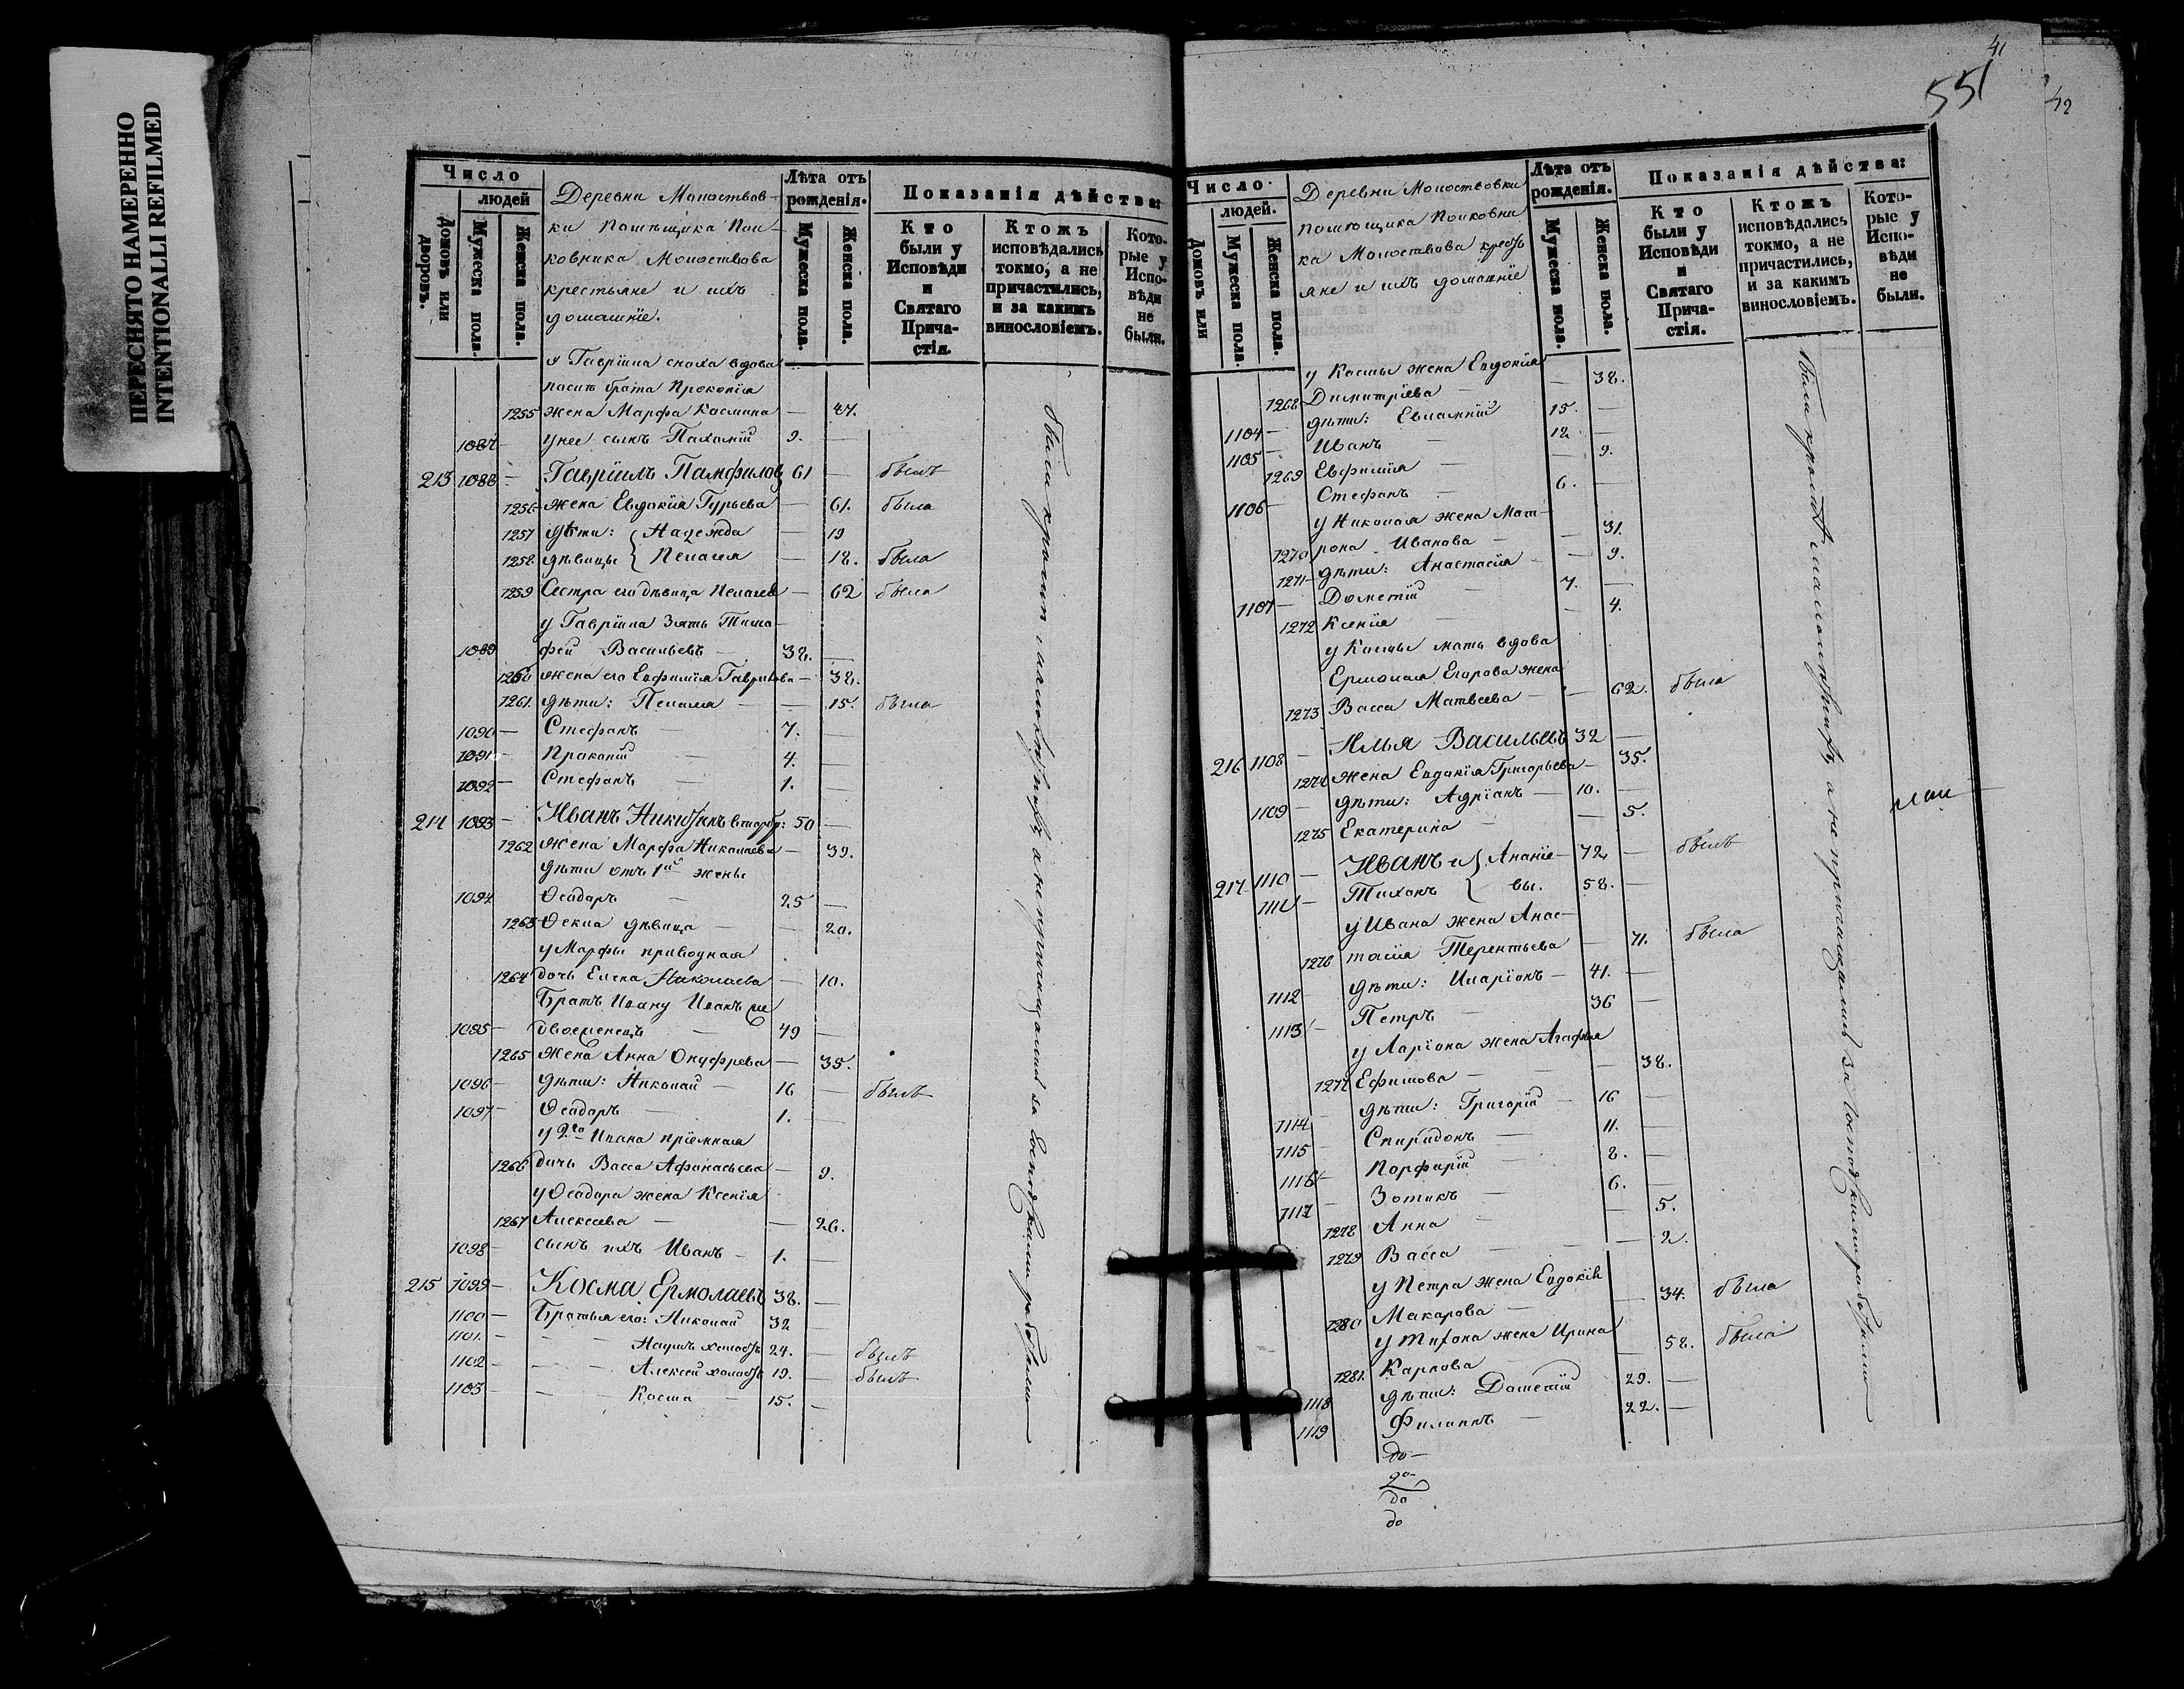 ПЕРЕСНЯТО НАМЕРЕННО
INTENTIONALLI REFILMED
Число
людей
Домовъ или дворовъ.
Мужеска пола.
Женска пола.
Деревни
ки помѣщика Пол-
ковника
крестьяне и ихъ
домашніе.
Лѣта отъ рожденія.
Мужеска пола.
Женска пола.
Показанія дѣйства:
Кто были у Исповѣди и Святаго Прича-стія.
Ктожъ исповѣдались токмо, а не причастились, и за какимъ винословіемъ.
Кото-рые у Испо-вѣди не были.
у Гавріила сноха вдова
брата Прокопія
1255 жена Марфа Космина — 47.
1087 — у нее сынъ Пахомій 9. —
213 1088 — Гавріилъ Памфиловъ 61 — былъ
1256 жена Евдокія Гурьева — 61. была
1257 дѣти: Надежда — 19
1258 дѣвицы Пелагея — 18. была
1259 Сестра его дѣвица Пелагея — 62 была
у Гавріила Зять Тимо-
1089 фей Васильевъ — 38. —
1260 жена его Евфимія Гаврилова — 38.
1261. дѣти: Пелагея — — 15. была
1090 — Стефанъ — 7. —
1091 — Прокопій — 4. —
1092 — Стефанъ — 1. —
214 1093 — Иванъ Никитинъ 50 —
1262 жена Марфа Николаева — 39.
дѣти отъ 1й жены
1094 Ѳеодоръ — 25 —
1263 Ѳекла дѣвица — — 20.
у Марфы приводная
1264 дочь Елена Николаева — 10.
Братъ Ивану Иванъ же
1095 — двоеженецъ — 49 —
1265 жена Анна Онуфрева — 35.
1096 — дѣти: Николай — 16 — былъ
1097 — Ѳеодоръ — 1. —
у 2го Ивана пріемная
1266 дочь Васса Афанасьева — 9.
у Ѳеодора жена Ксенія
1267 Алексеева — — 26.
1098 — сынъ ихъ Иванъ — 1. —
215 1099 — Косма Ермолаевъ 38. —
1100 — Братья его: Николай 32 —
1101. — — — Наумъ 24. — былъ
1102 — — — Алексей 19. — былъ
1103 — — — Косма 15. —
были крот а не причащались за Господскими работами
41
551
42
Число
людей.
Домовъ или
Мужеска пола.
Женска пола.
Деревни
помѣщика Полковни
ка кресть
яне и ихъ домашніе
Лѣта отъ рожденія.
Мужеска пола.
Женска пола.
Показанія дѣйства:
Кто были у Исповѣди и Святаго Прича-стія.
Ктожъ исповѣдались токмо, а не причастились, и за какимъ винословіемъ.
Кото-рые у Испо-вѣди не были.
у Космы жена Евдокія
1268 Димитріева — — 38.
1104 — дѣти: Евлампій 15. —
1105 — Иванъ — 12 —
1269 Евфимія — — 9.
1106 — Стефанъ — 6. —
у Николая жена Мат-
1270 рона Иванова — — 31.
1271 — дѣти: Анастасія — — 9.
1107 — Дометій 7. —
1272 Ксенія — — 4.
у Космы мать вдова
Ермолая Егорова жена
1273 Васса Матвеева — — 62. была
216 1108 — Илья Васильевъ 32 —
1274 жена Евдокія Григорьева — 35.
1109 — дѣти: Адріанъ — 10. —
1275 Екатерина — — 5.
217 1110 — Иванъ и Ананіе — 72 — былъ
1111 — Тихонъ вы. 58. —
у Ивана жена Анас-
1276 тасія Терентьева — 71. была
1112 — дѣти: Иларіонъ — 41. —
1113 — Петръ — 36 —
у Ларіона жена Агафья
1277 Ефимова — — 38.
1114 — дѣти: Григорій — 16 —
1115 — Спиридонъ — 11. —
1116 — Порфирій 8. —
1117 — Зотикъ — 6. —
1278 Анна — — 5.
1279 Васса — — 2.
у Петра жена Евдокія
1280 Макарова — — 34. была
у Тихона жена Ирина
1281. Карпова — — 58. была
1118 дѣти: Дометій 29. —
1119 Филиппъ — 22. —
до
до
до
а не причащались за Господскими работами